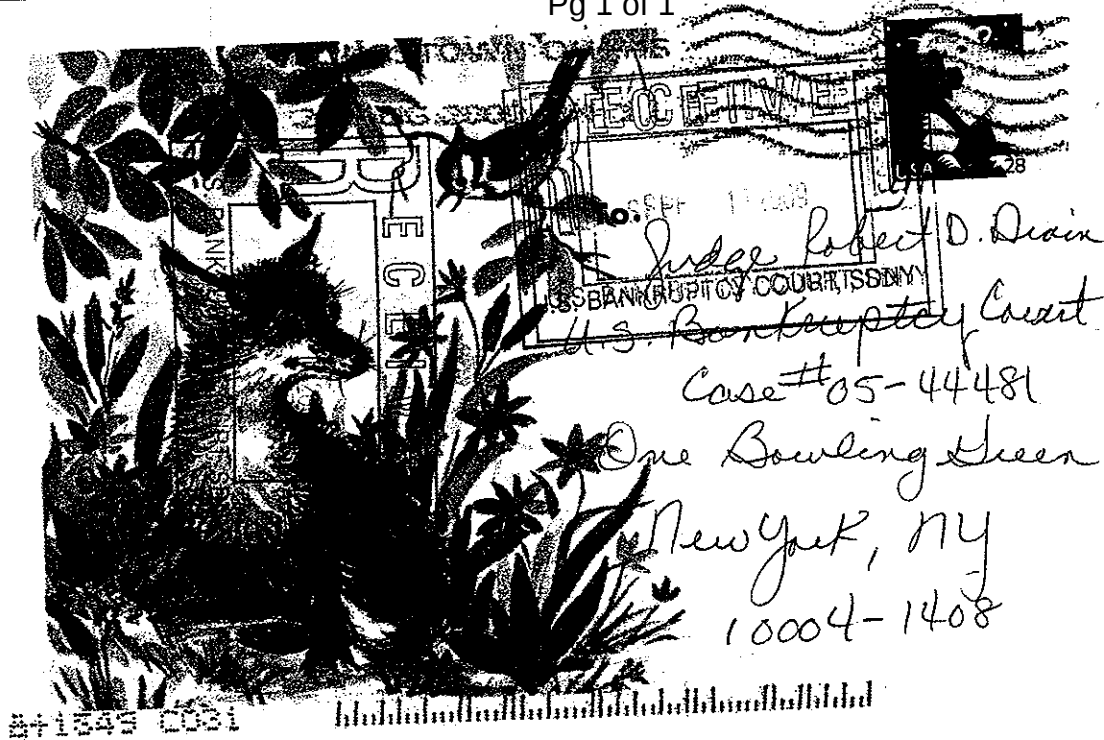 Pg 1 of 1
RECEIVE
USA 28
Judge Robert D. Drain
U.S. BANKRUPTCY COURT, SDNY
U.S. Bankruptcy Court
Case # 05-44481
One Bowling Green
New York, NY
10004-1408